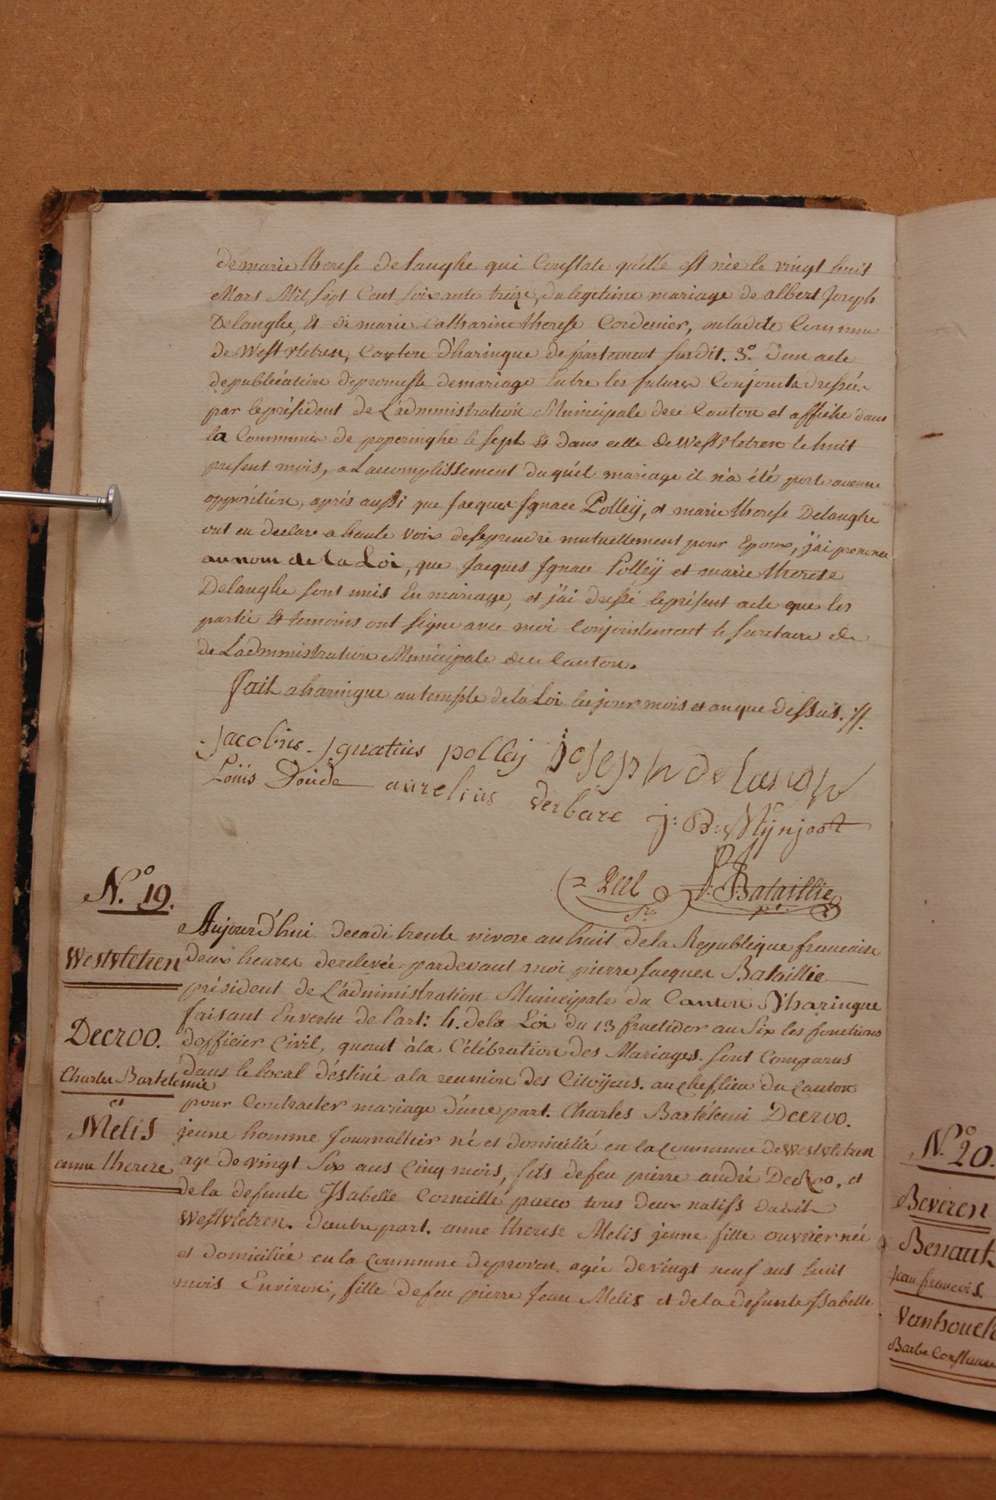 de marie therese delanghe qui Constate quelle est née le vingt huit
Mars Mil sept Cent soixante treize, du legitime mariage de albert Joseph
Delanghe, et de marie Catharine therese Cordenier, en ladite Commune
de Westvletren, Canton d'haringue departement susdit. 3.º d'un acte
de publication de promesse de mariage entre les futures Conjoints dressée
par le président de L'administration Municipale de ce Canton et affichée dans
la Commune de poperinghe le sept et dans celle de Westvletren le huit
present mois, a L'accomplissement duquel mariage il n'a été porté aucune
opposition, après aussi que Jacques Ignace Polleÿ, et marie therese Delanghe
ont eu declaré a haute voix de se prendre mutuellement pour Epoux, j'ai prononcé
au nom de la Loi, que Jacques Ignace Polleÿ et marie therese
Delanghe sont unis En mariage, et j'ai dressé le présent acte que les
partie et temoins ont signe avec moi Conjointement le secretaire de
de L'administration Municipale de ce Canton.
Fait a haringue au temple de la Loi les jour mois et an que dessus. //.
Jacobus Ignatius polleij joseph de langhe
Loüis Doude aurelius verbare j: B:
P: J: Bataillie
N.º 19.
Westvletren
Decroo.
Charles Bartelemie
et
Melis
anne therese
Aujourd'hui decadi trente nivose an huit de la Republique francaise
deux heures de relevée pardevant moi pierre Jacques Bataillie
président de L'administration Municipale du Canton d'haringue
faisant En vertu de l'art: 4. de la Loi du 13 fructidor an Six les fonctions
d'officier Civil, quant à la Célébration des Mariages. sont Comparus
dans le local destiné a la reunion des Citoÿens. au chef lieu du Canton
pour Contracter mariage d'une part. Charles Bartélemi Decroo.
jeune homme Journallier né et domicilié en la commune de Westvletren
age de vingt Six ans Cinq mois, fils de feu pierre andré Decroo, et
de la defunte Isabelle Corneille pareo tous deux natifs dudit
Westvletren. d'autre part. anne therese Melis jeune fille ouvrier née
et domiciliée en la Commune de proven, agée de vingt neuf ans huit
mois Environ, fille de feu pierre Jean Melis et de la defunte Isabelle
N.º 20.
Beveren
Benaut
Jean francois.
Vanhouck
Barbe Constance